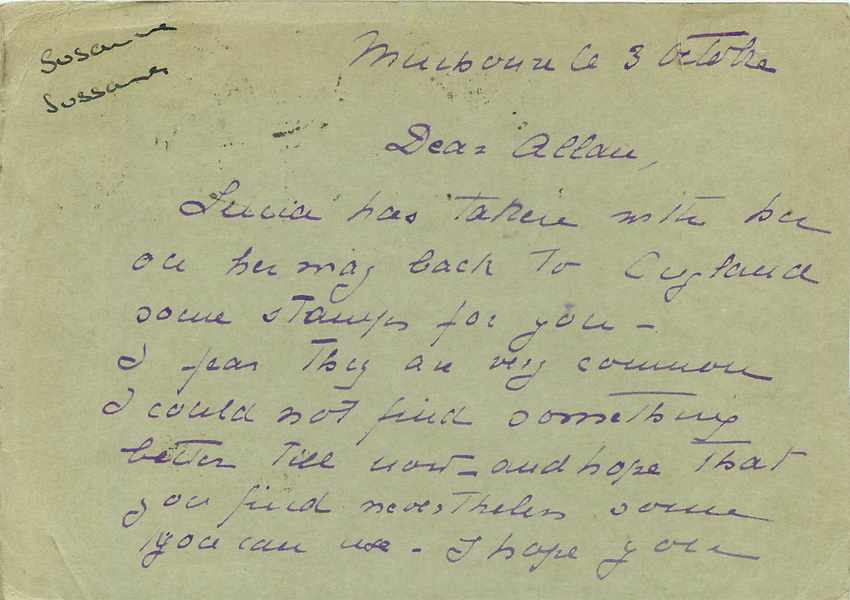 Susanne
Sussanne
le 3 Octobre
Dear Allan,
Lucia has taken with her
on her way back to England
some stamps for you -
I fear they are very common
I could not find something
better till now - and hope that
you find nevertheless some
you can use - I hope you